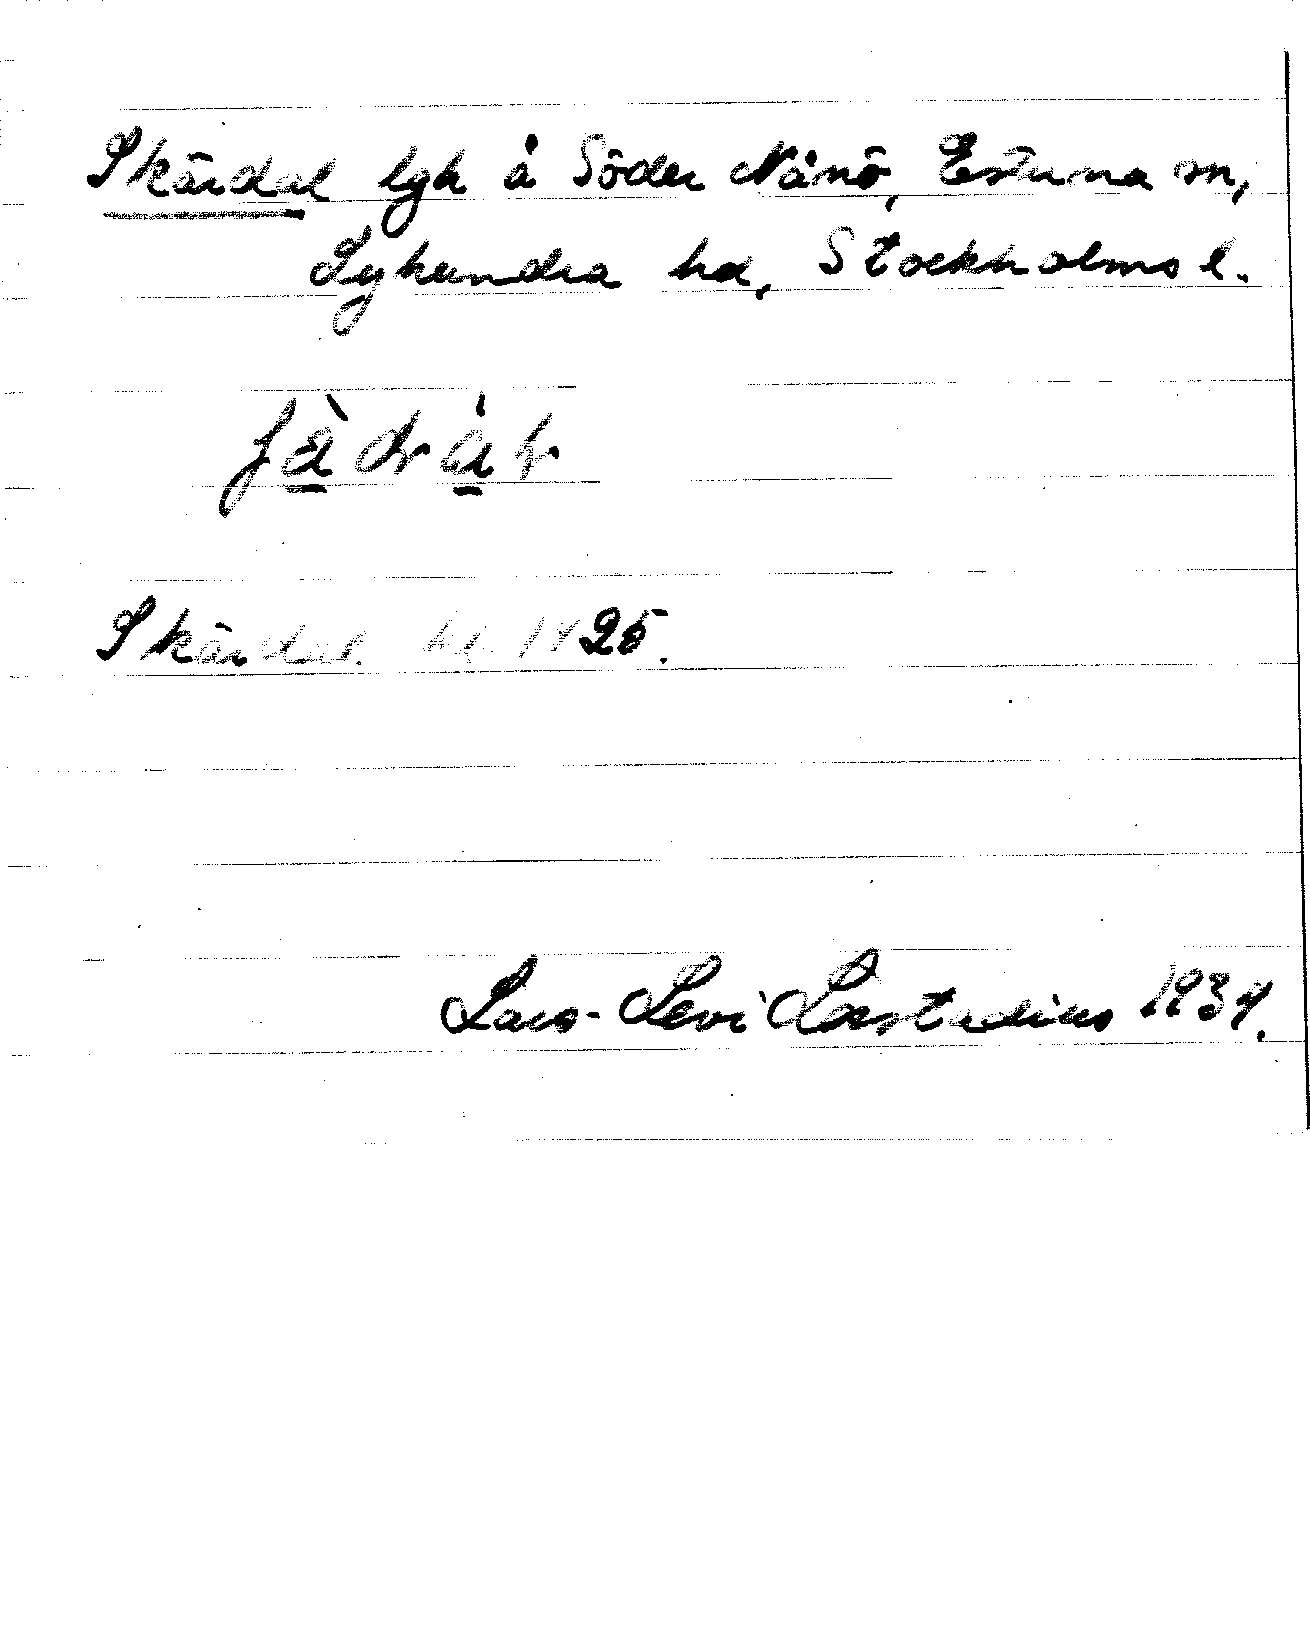 Skärdal lgh å Söder Nånö, Estuna sn,
Lyhundra hd, Stockholms l.
Skärdal hd. 1825.
Lars-Levi Læstadius 1934.